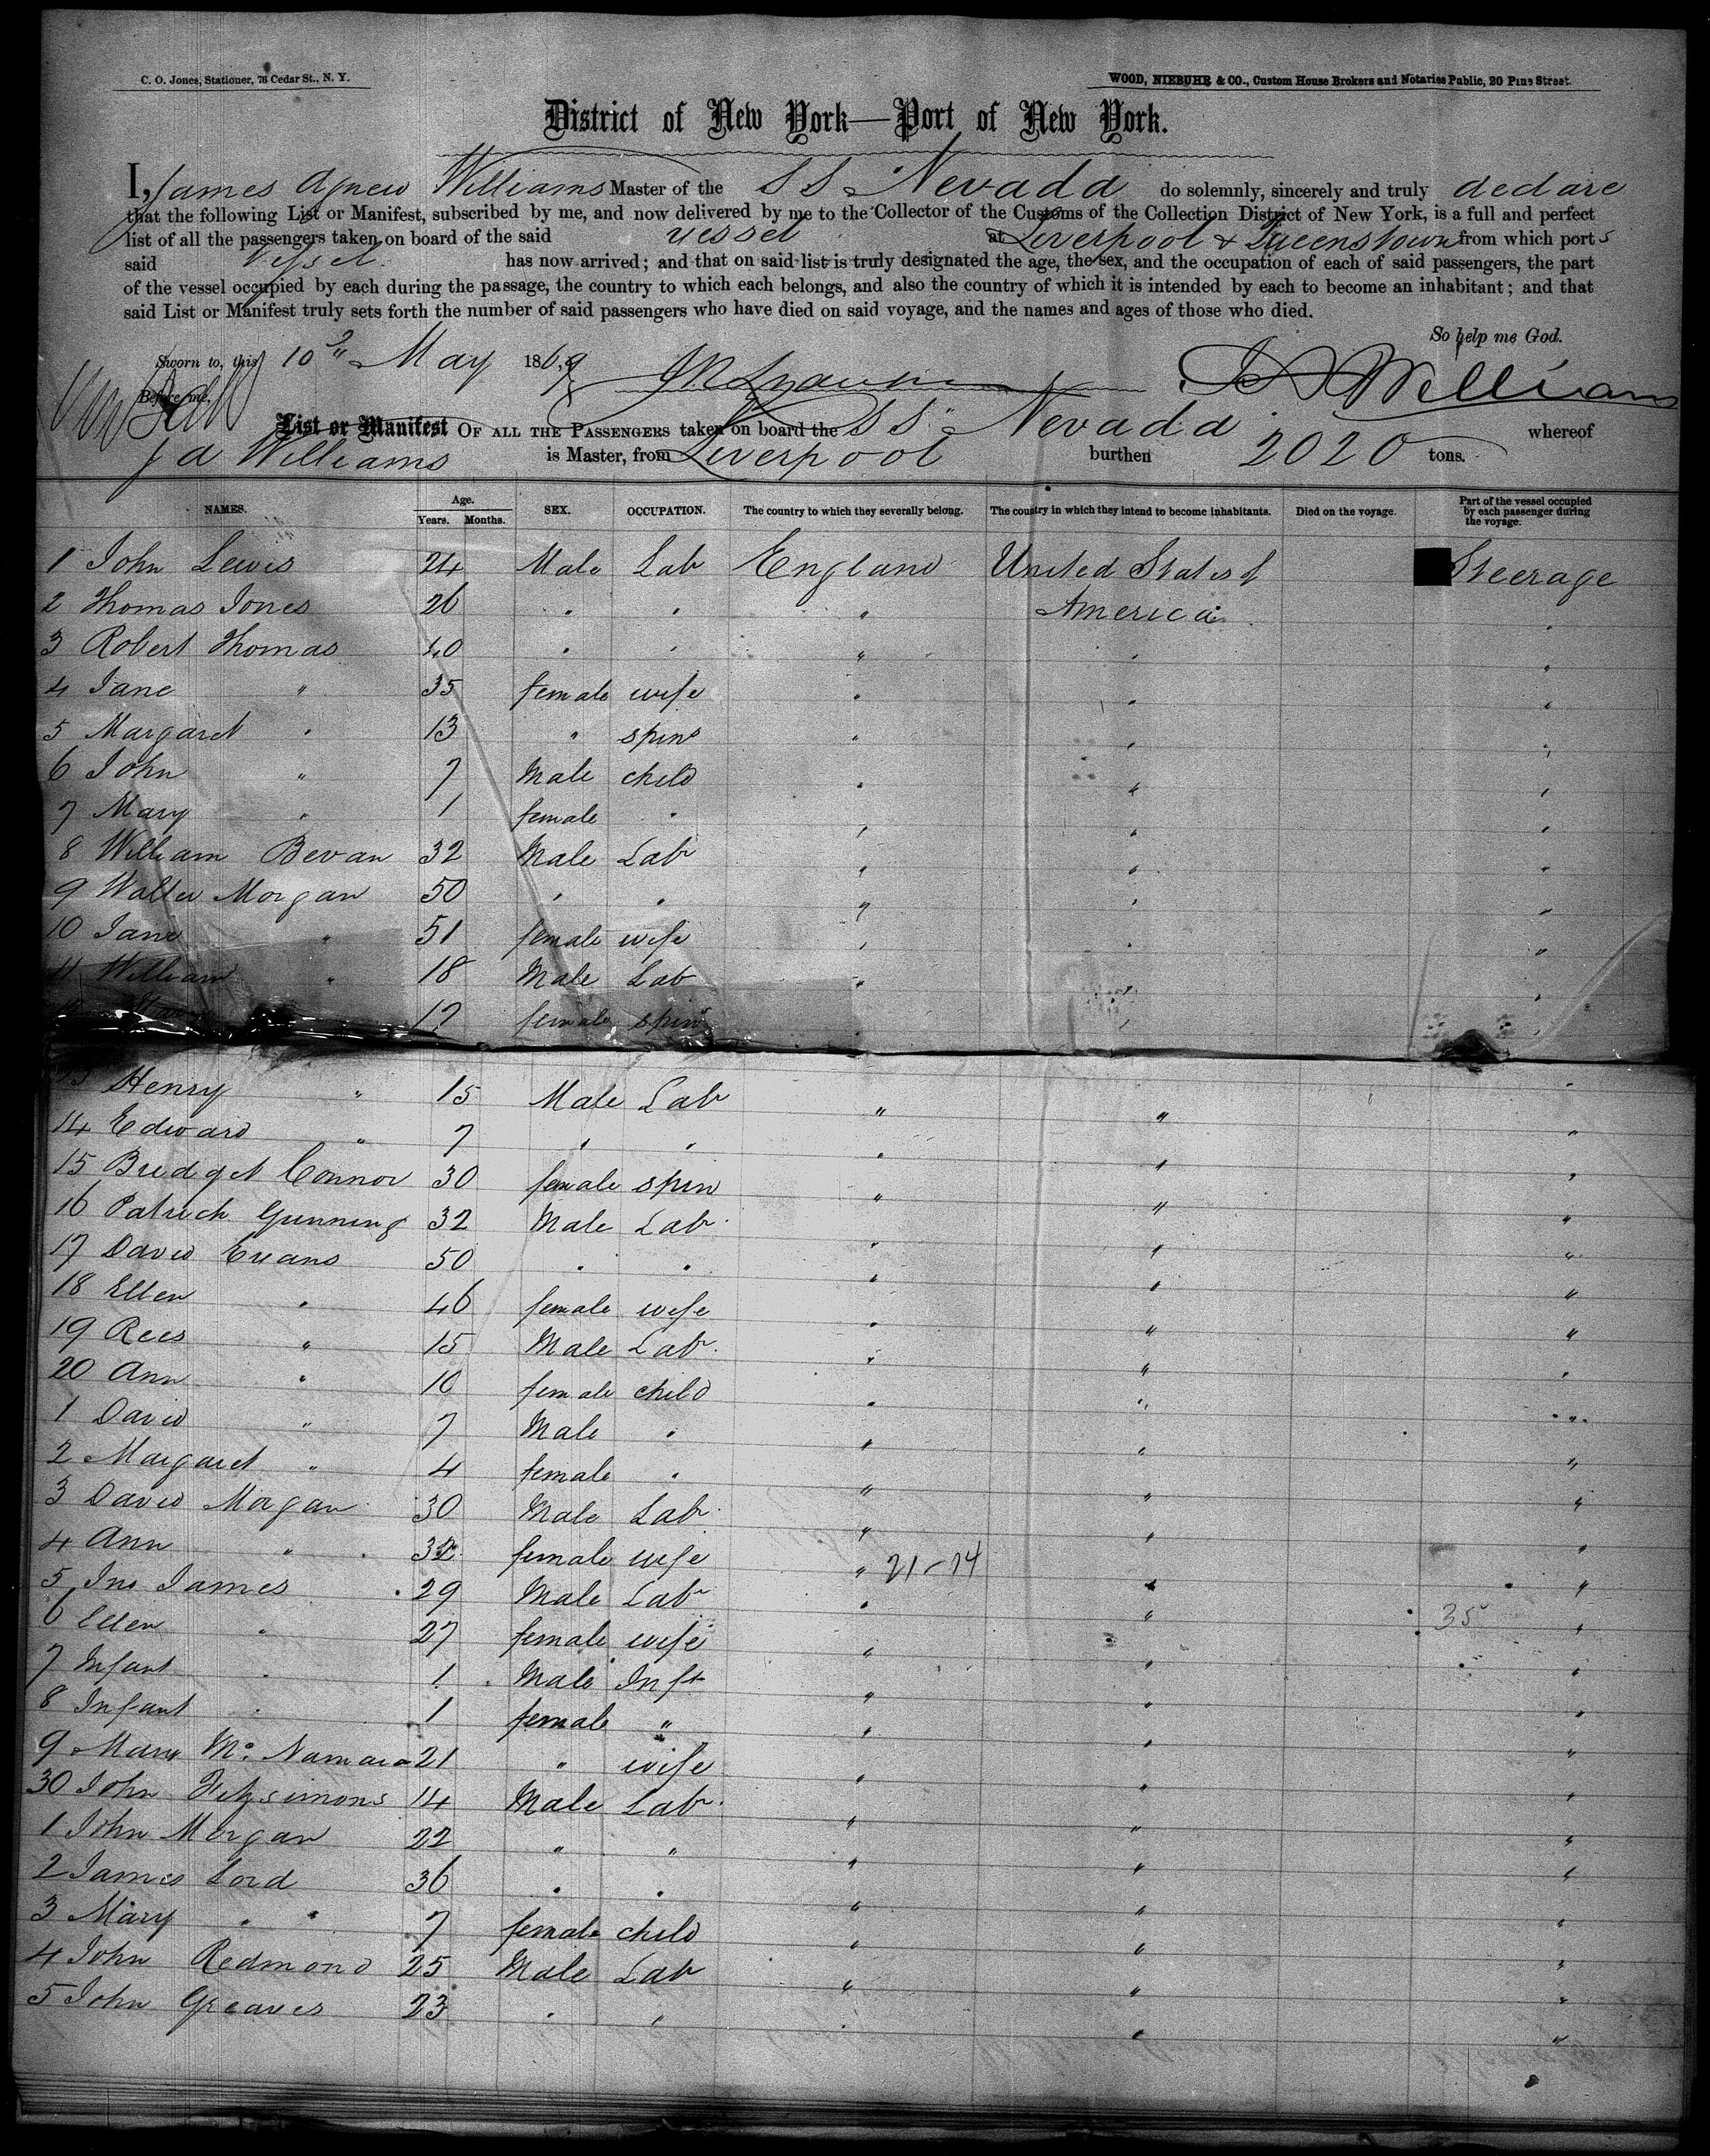 C. O. Jones, Stationer, 76 Cedar St., N. Y.
WOOD, NIEBUHR & CO., Custom House Brokers and Notaries Public, 20 Pine Street.
District of New York—Port of New York.
I, James Agnew Williams Master of the SS Nevada do solemnly, sincerely and truly declare
that the following List or Manifest, subscribed by me, and now delivered by me to the Collector of the Customs of the Collection District of New York, is a full and perfect
list of all the passengers taken on board of the said vessel at Liverpool & Queenstown from which ports
said Vessel has now arrived; and that on said list is truly designated the age, the sex, and the occupation of each of said passengers, the part
of the vessel occupied by each during the passage, the country to which each belongs, and also the country of which it is intended by each to become an inhabitant; and that
said List or Manifest truly sets forth the number of said passengers who have died on said voyage, and the names and ages of those who died.
So help me God.
Sworn to, this 10 May 1869
J A Williams
Before me,
List or Manifest OF ALL THE PASSENGERS taken on board the SS Nevada whereof
J A Williams is Master, from Liverpool burthen 2020 tons.
NAMES. Age. Years. Months. SEX. OCCUPATION. The country to which they severally belong. The country in which they intend to become inhabitants. Died on the voyage. Part of the vessel occupied by each passenger during the voyage.
1 John Lewis 24 Male Lab England United States of Steerage
2 Thomas Jones 26 " " " America "
3 Robert Thomas 40 " " " " "
4 Jane " 35 female wife " " "
5 Margaret " 13 " spins " " "
6 John " 7 Male child " " "
7 Mary " 1 female " " " "
8 William Bevan 32 Male Lab " " "
9 Walter Morgan 50 " " " " "
10 Jane " 51 female wife " " "
11 William " 18 Male Lab " " "
12 17 female spin " "
13 Henry " 15 Male Lab " " "
14 Edward " 7 " " " " "
15 Bridget Connor 30 female spin " " "
16 Patrick Gunning 32 Male Lab " " "
17 David Evans 50 " " " " "
18 Ellen " 46 female wife " " "
19 Rees " 15 Male Lab " " "
20 Ann " 10 female child " " "
1 David " 7 Male " " " "
2 Margaret " 4 female " " " "
3 David Morgan 30 Male Lab " " "
4 Ann " 32 female wife " 21-74 " "
5 Jno James 29 Male Lab " " 35 "
6 Ellen " 27 female wife " " "
7 Infant " 1 Male Inft " " "
8 Infant " 1 female " " " "
9 Mary McNamara 21 " wife " " "
30 John Fitzsimons 14 Male Lab " " "
1 John Morgan 22 " " " " "
2 James Lord 36 " " " " "
3 Mary " 7 female child " " "
4 John Redmond 25 Male Lab " " "
5 John Greaves 23 " " " " "